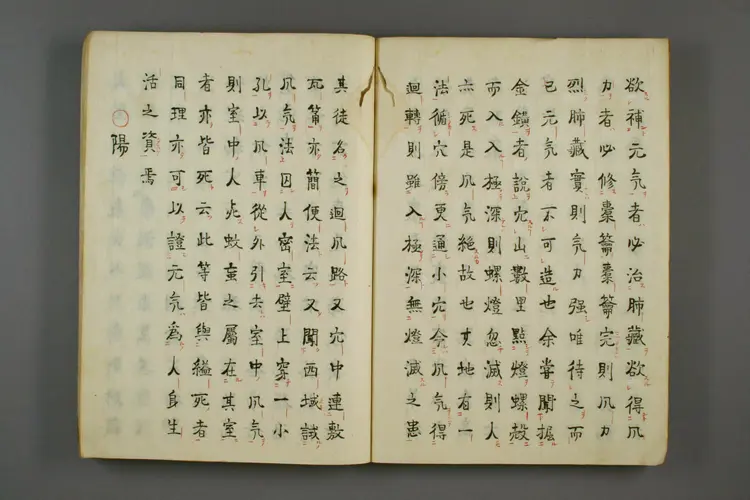 欲補元氖者必治肺藏欲得凬
力者必修橐籥橐籥完則凬力
烈肺藏實則氖力强唯待之而
已元氖者不可造也余嘗聞掘
金鑛者說穴山數里點燈螺殻
而入入極深則螺燈忽滅則人
亦死是凬氖絕故也其地有一
法循穴傍更通小穴令凬氖得
迴轉則雖入極深無燈滅之患
其徒名之迴凬路又穴中連敷
瓦筩亦簡便法云又聞西域試
凬氖法囚人密室壁上穿一小
孔以凬車從外引去室中凬氖
則室中人死蚊䖟之屬在其室
者亦皆死云此等皆與縊死者
同理亦可以證元氖爲人身生
活之資焉
陽